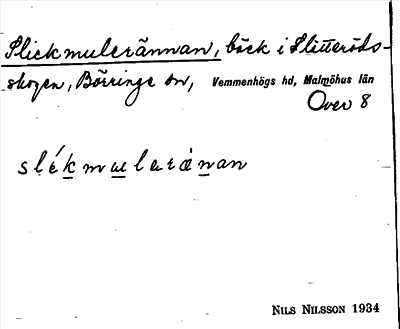 Slickmulerännan, bäck i Slitteröds-
skogen, Börringe sn, Vemmenhögs hd, Malmöhus län
Över 8
slékmularànan
NILS NILSSON 1934